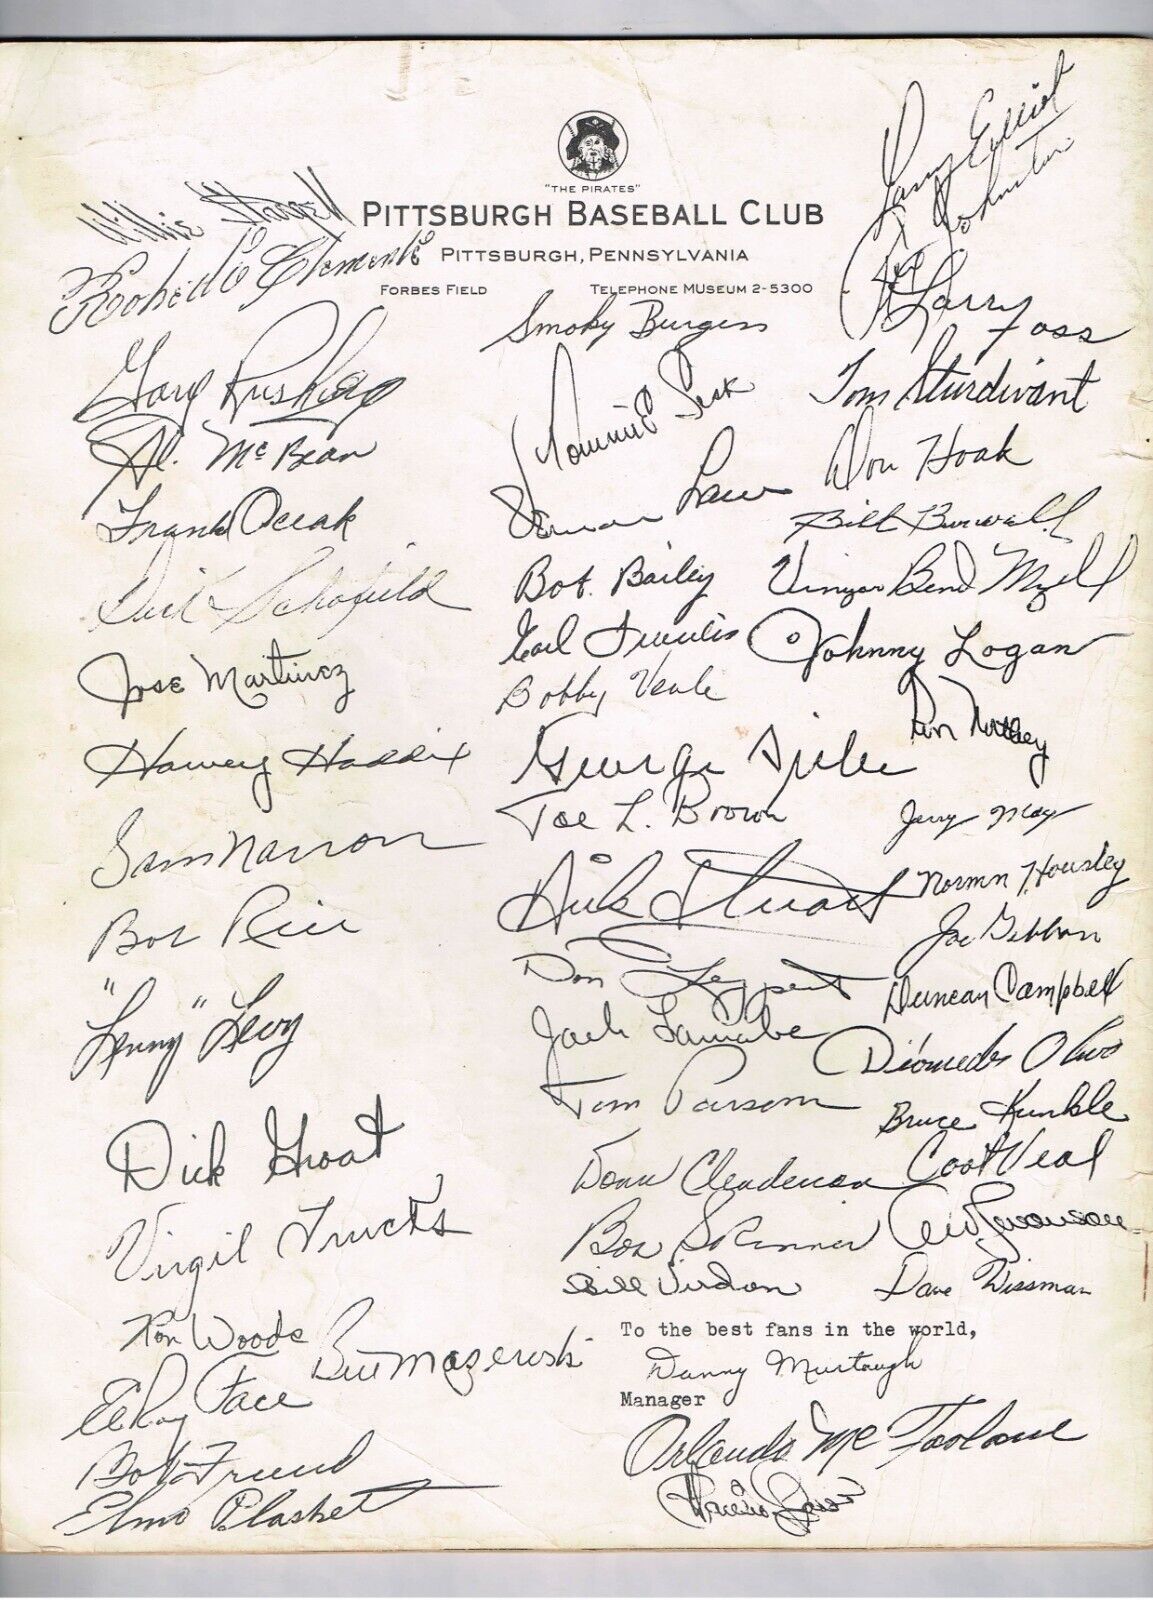 "THE PIRATES"
PITTSBURGH BASEBALL CLUB
PITTSBURGH, PENNSYLVANIA
FORBES FIELD TELEPHONE MUSEUM 2-5300
Willie Stargell
Roberto Clemente
Gary Rushing
Al. McBean
Frank Oceak
Dick Schofield
Jose Martinez
Harvey Haddix
Sam Narron
Bob
"Lenny" Levy
Dick Groat
Virgil Trucks
Ron Woods
Bill Mazeroski
ElRoy Face
Bob Friend
Elmo Plaskett
Smoky Burgess
Vernon Law
Bob Bailey
Earl Francis
Bobby Veale
George
Joe L. Brown
Dick Stuart
Don Leppert
Jack Lamabe
Tom Parsons
Donn Clendenon
Bob Skinner
Bill Virdon
Larry Elliot
Johnston
Larry Foss
Tom Sturdivant
Don Hoak
Vinegar Bend Mizell
Johnny Logan
Jerry May
Norman Housley
Joe Gibbon
Duncan Campbell
Diomedes Olivo
Bruce Kunkle
Coot Veal
Dave Wissman
To the best fans in the world,
Danny Murtaugh
Manager
Orlando McFarlane